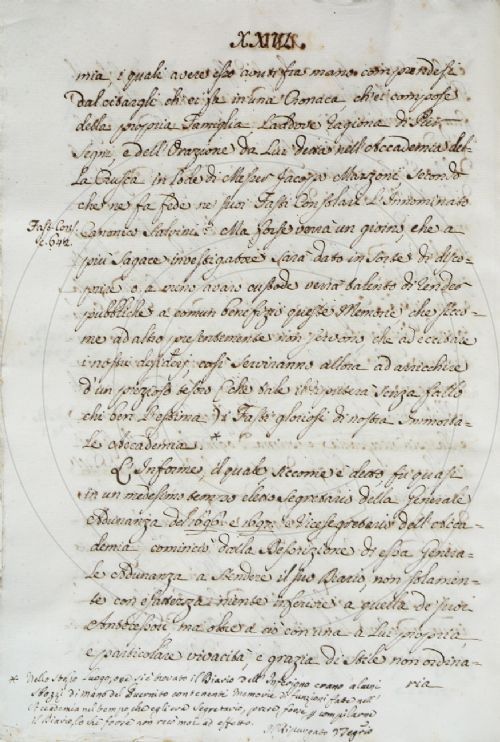 XXIIII.
mia, i quali avere esso avuti fra mano comprendesi
dal citargli ch'ei fa in una Cronaca, ch'ei compose
della propria Famiglia. Laddove ragiona di Pier
Segni, e dell'Orazione da Lui detta nell'Accademia del-
La Crusca in Lode di Messer Jacopo Mazzoni secondo
che ne fa fede ne suoi Fasti Consolari L'Innominato
Fasti Cons.
c. 642.
Canonico Salvini. Ma forse verrà un giorno, che a
più sagace investigatore sarà dato in sorte di
o a meno avaro custode verrà talento di render
pubbliche a comun benefizio queste Memorie, che sicco-
me ad altro presentemente non servono che ad eccitare
i nostri così serviranno allora ad arricchire
d'un prezioso tesoro (che tale il reputerà senza fallo
chi ben l'estima) i Fasti gloriosi di nostra Immorta-
le Accademia. *
L'Inferme, il quale siccome è detto fu quasi
in un medesimo tempo eletto Segretario della Generale
Adunanza del e Vicesegretario dell'Acca-
demia cominciò dalla Descrizione di essa Genera-
le Adunanza a stendere il suo Diario, non solamen-
te con esattezza niente inferiore a quella de' suoi
Antecessori, ma oltre a ciò con una a Lui propria
e particolare vivacità, e grazia di stile non ordina-
ria
* Nello stesso Luogo, ove si è trovato il Diario dell' erano alcuni
Stozzi di mano del contenenti Memorie di Funzioni fatte nell'
Accademia nel tempo, che egli era Segretario, per compilarne
il Diario, lo che forse non recò mai ad effetto.